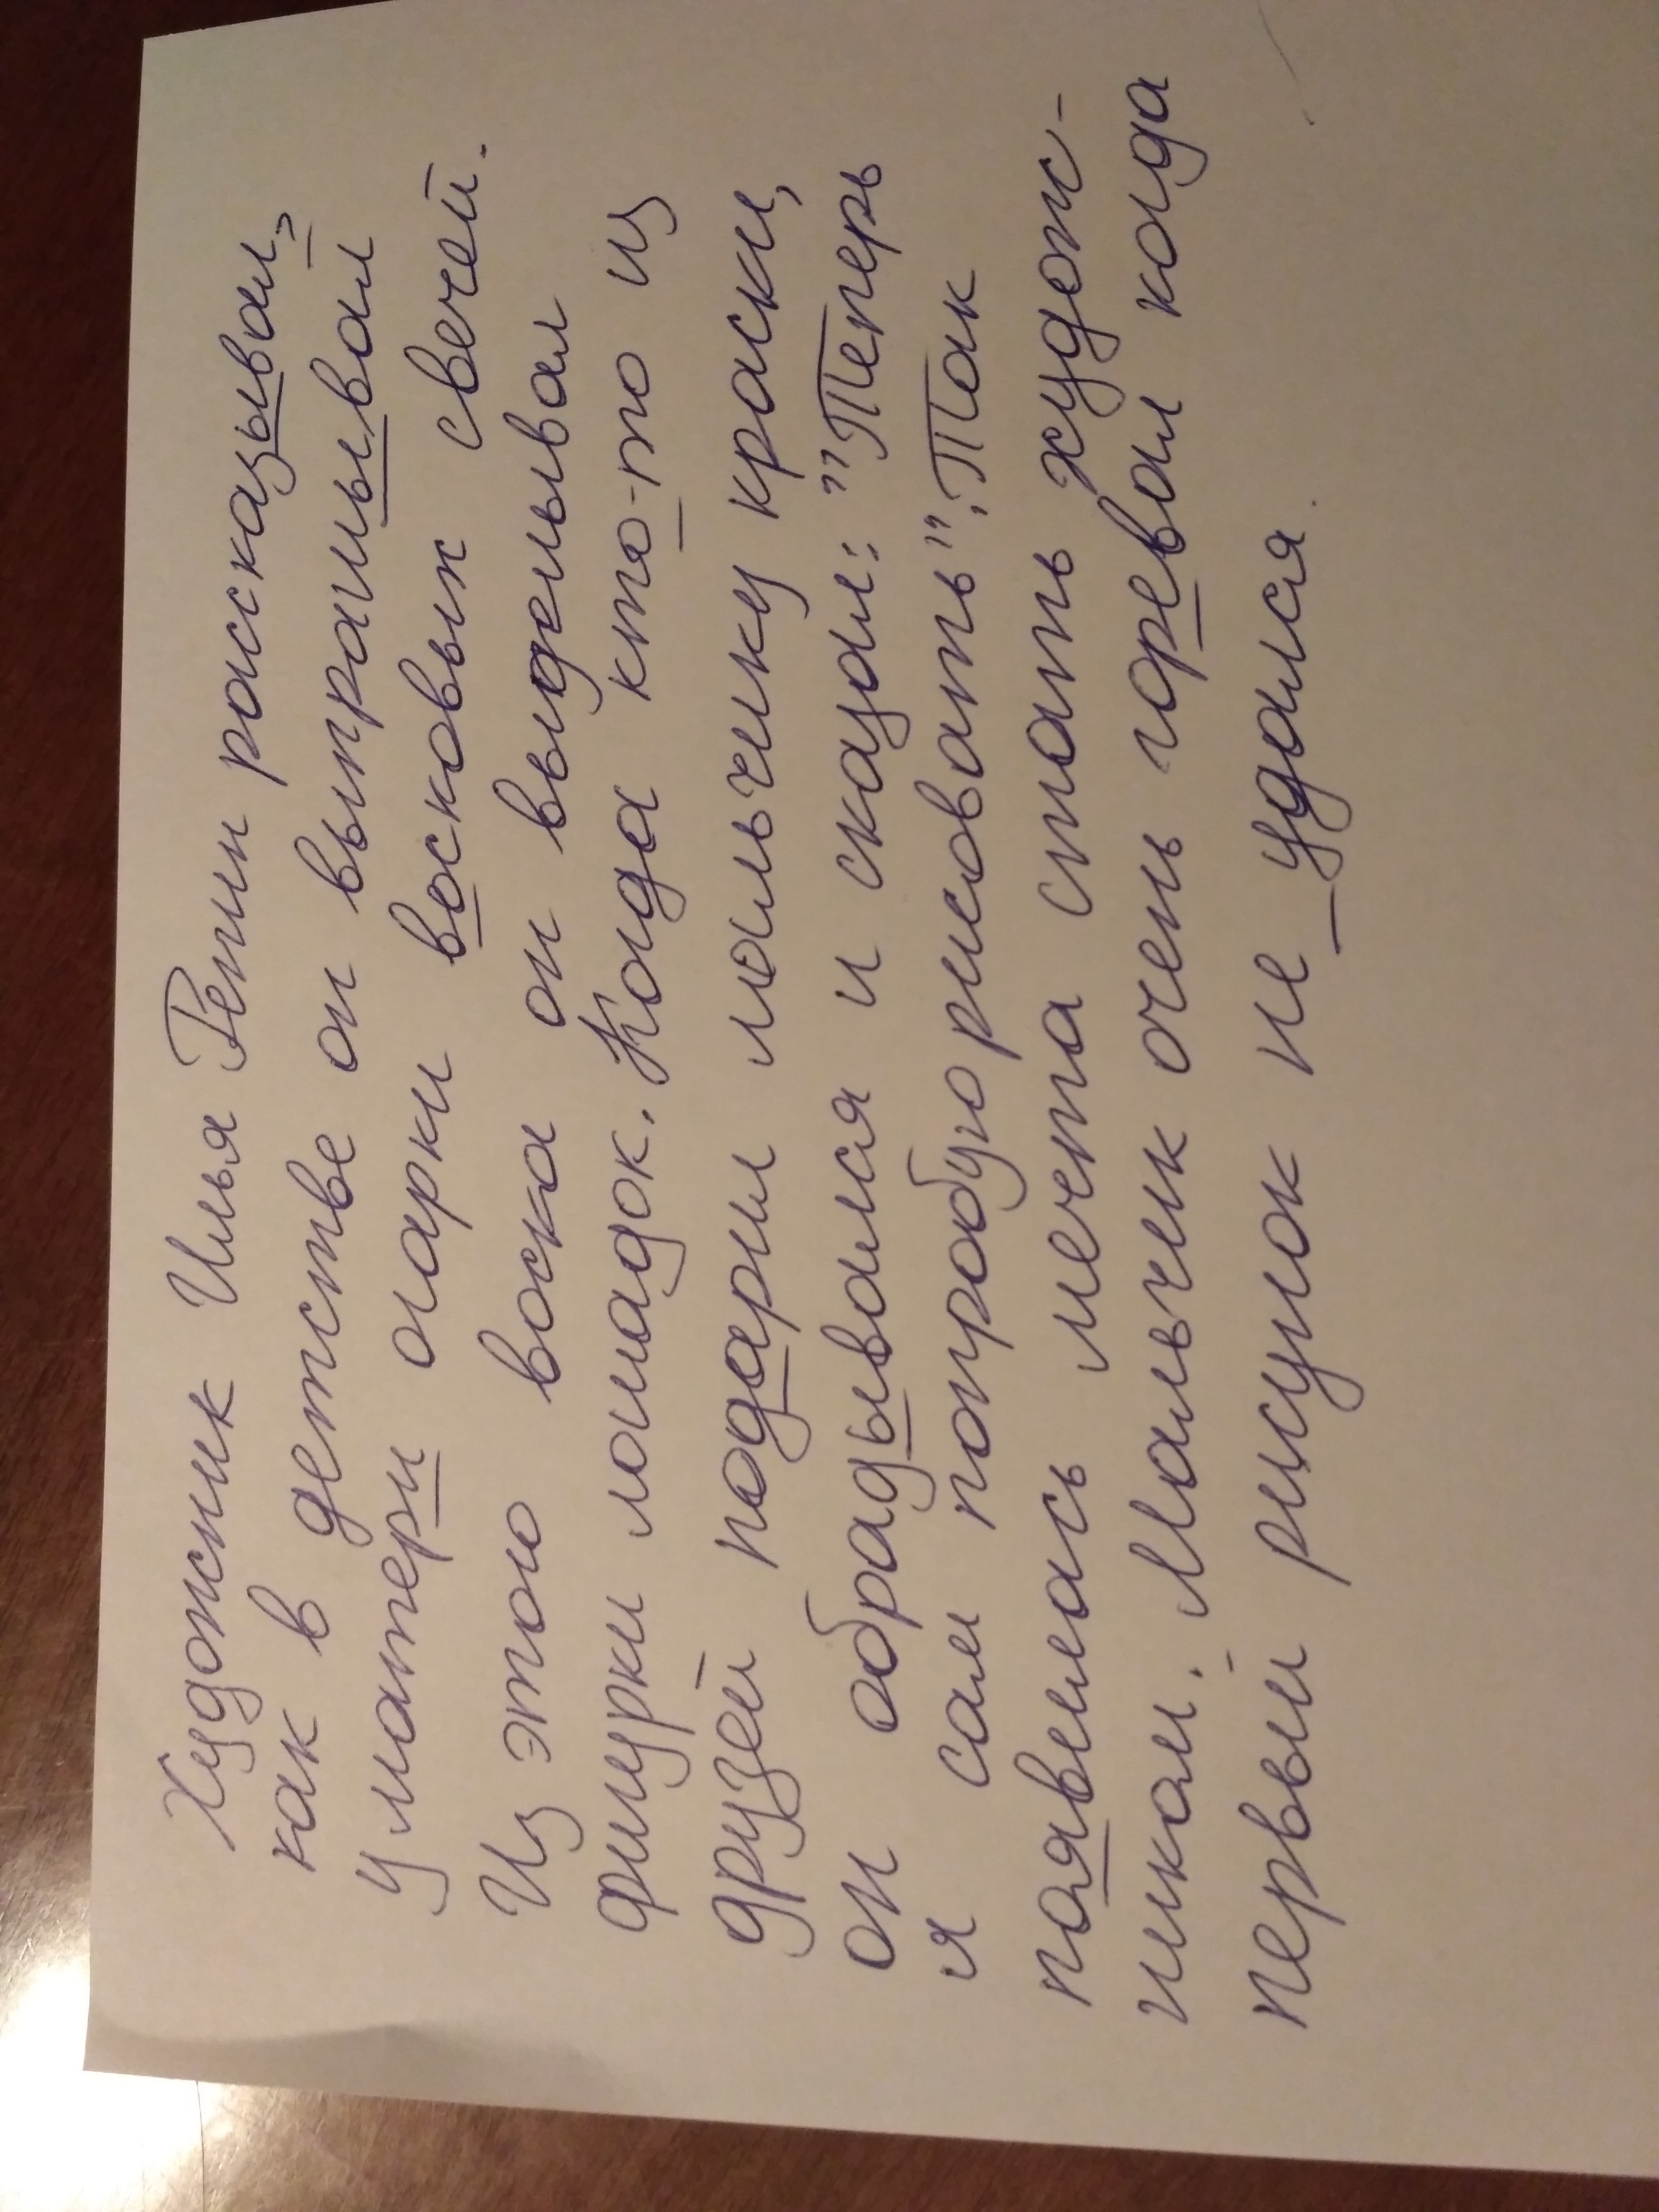 Художник Илья Репин рассказывал,
как в детстве он выпрашывал
у матери огарки восковых свечей.
Из этого воска он выделывал
фигурки лошадок. Когда кто-то из
друзей подарил мальчику краски,
он обрадывался и сказал: "Теперь
я сам попробую рисовать". Так
появилась мечта стать худож-
ником. Мальчик очень горевал когда
первый рисунок не удался.